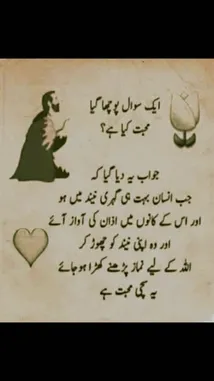 ایک سوال پوچھا گیا
محبت کیا ہے؟
جواب یہ دیا گیا کہ
جب انسان بہت ہی گہری نیند میں ہو
اور اس کے کانوں میں اذان کی آواز آئے
اور وہ اپنی نیند کو چھوڑ کر
اللہ کے لیے نماز پڑھنے کھڑا ہو جائے
یہ سچی محبت ہے